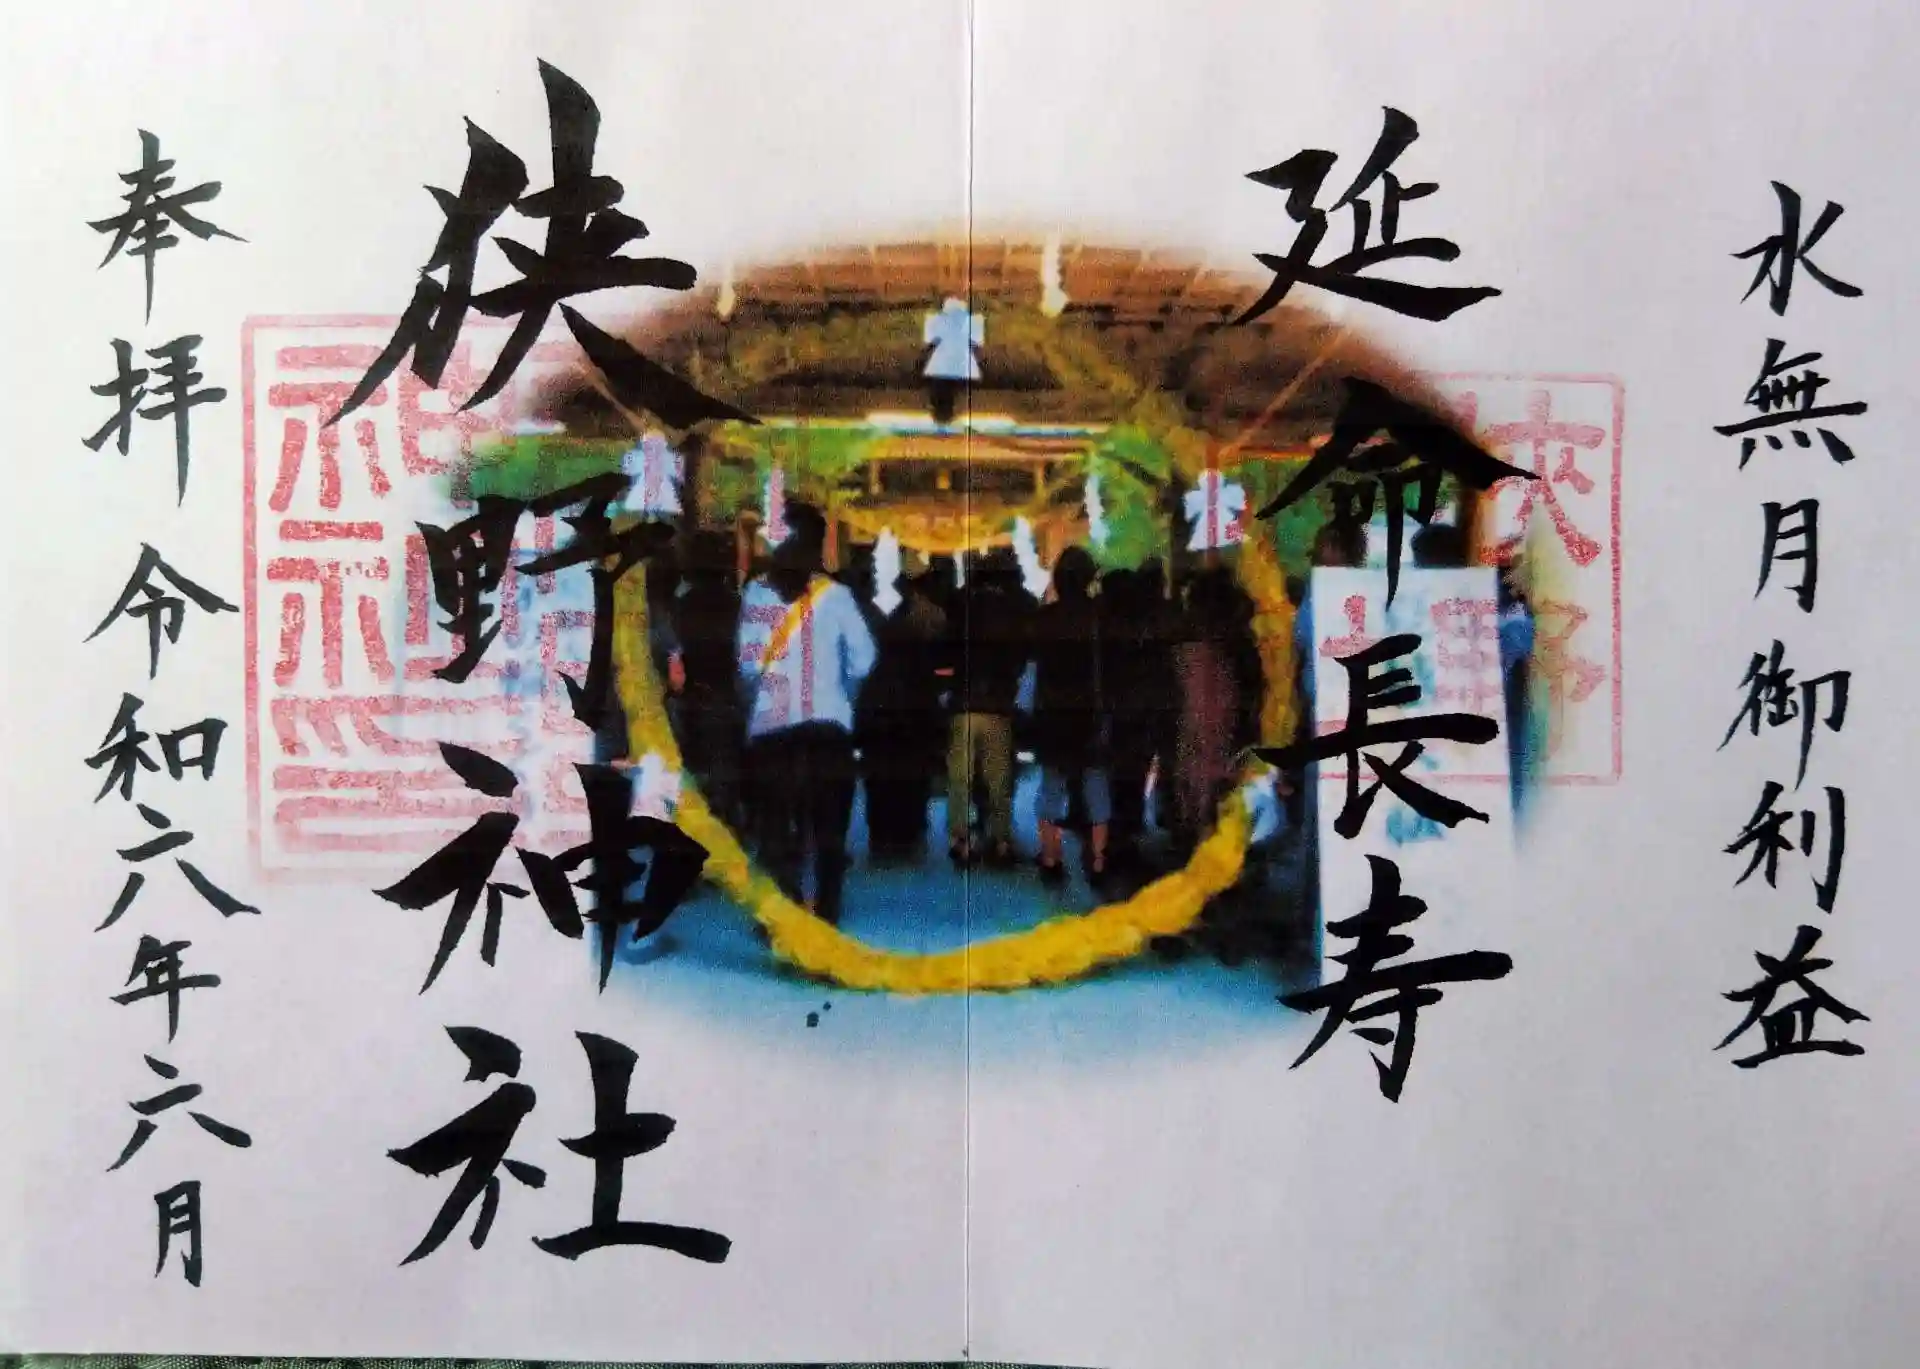 水無月御利益
延命長寿
狭野神社
奉拝 令和六年六月
狭野